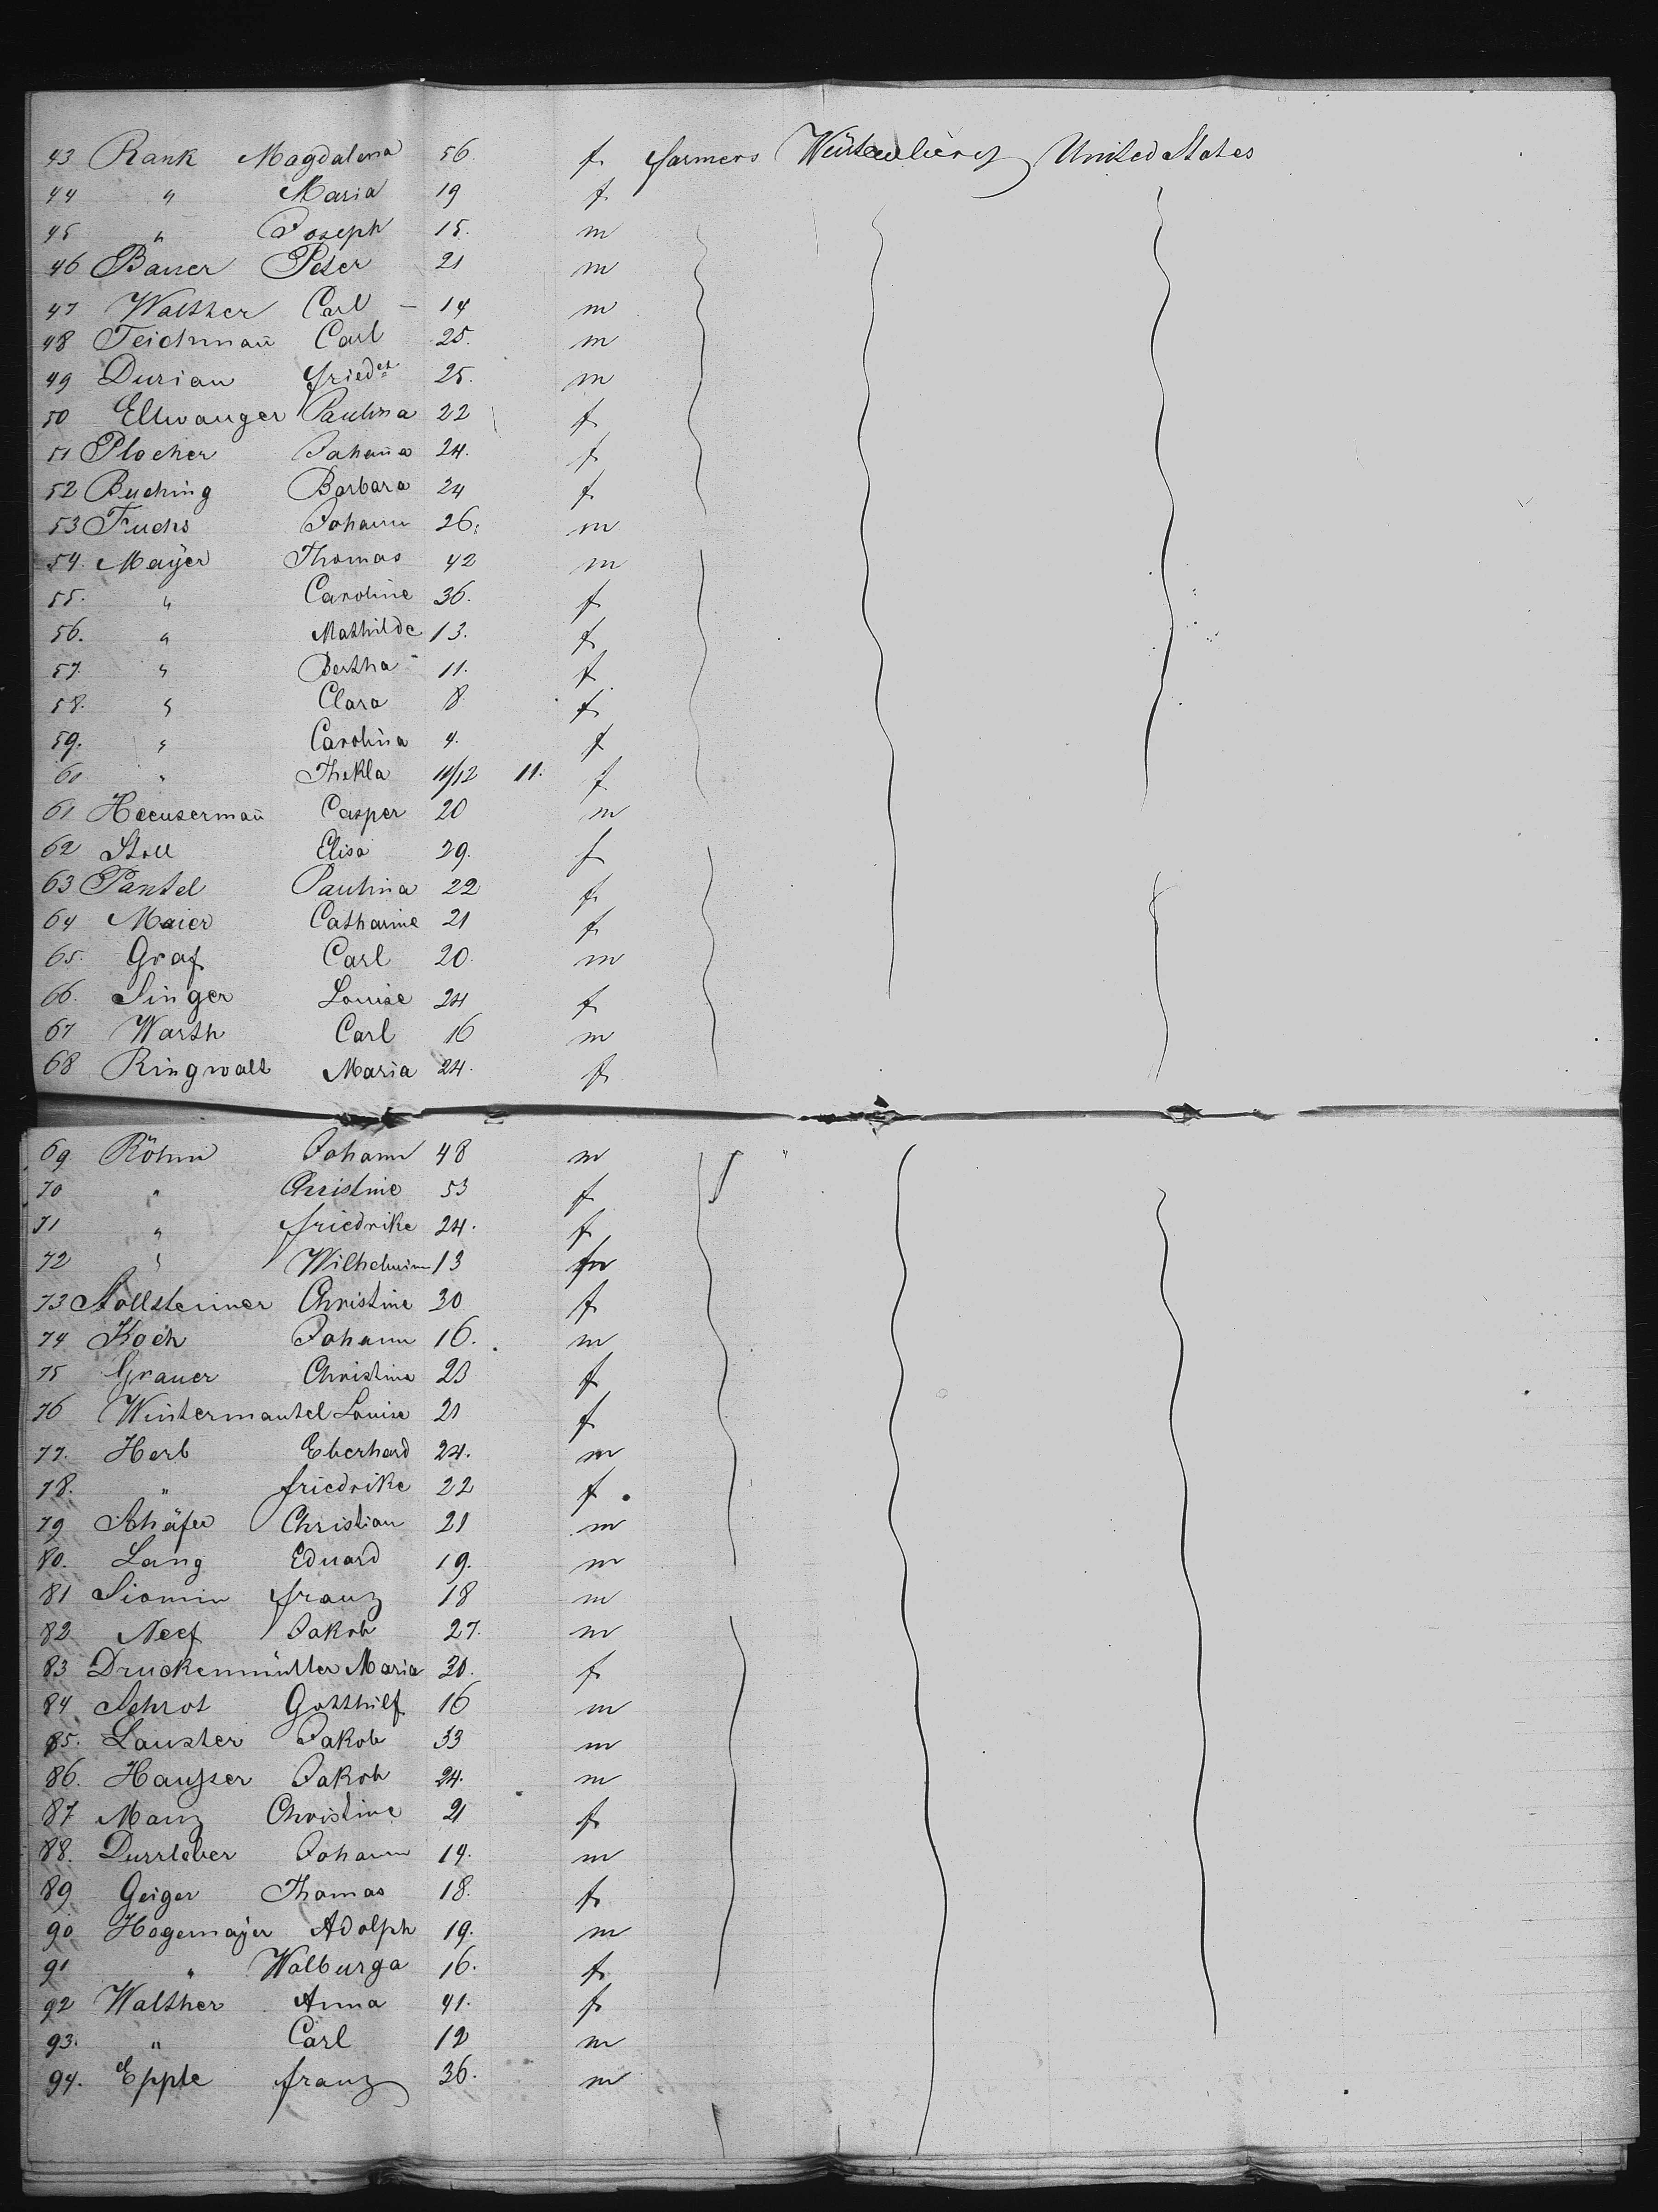 43 Rank Magdalena 56. f farmers Würtemberg United States
44 " Maria 19 f
45 " Joseph 15. m
46 Bauer Peter 21 m
47 Walther Carl — 14 m
48 Teichmañ Carl 25. m
49 Durian 25. m
50 Ellwanger Paulina 22 f
51 Plocher Johaña 24. f
52 Buching Barbara 24 f
53 Fuchs Johann 26. m
54. Mayer Thomas 42 m
55. " Caroline 36. f
56. " Mathilde 13. f
57. " Bertha 11. f
58. " Clara 8. f
59. " Carolina 4. f
60 " Thekla 11/12 11. f
61 Casper 20 m
62 Stoll Elisa 29. f
63 Pantel Paulina 22 f
64 Maier Catharine 21 f
65. Graf Carl 20. m
66. Singer Louise 24 f
67 Warth Carl 16 m
68 Ringwalt Maria 24. f
69 Röhm Johann 48 m
70 " Christine 53 f
71 " Friedrike 24. f
72 " 13
73 Christine 30 f
74 Koch Johann 16. m
75 Grauer Christine 23 f
76 Wintermantel Louise 21 f
77. Herb Eberhard 24. m
78. " Friedrike 22 f
79 Shäfer Christian 21 m
80. Lang Eduard 19. m
81 Franz 18 m
82 Neef Jakob 27. m
83 Druckenmüller Maria 30. f
84 Schrot Gotthilf 16 m
85. Lauster Jakob 33 m
86. Hauser Jakob 24. m
87 Manz Christine 21 f
88. Johann 14. m
89 Geiger Thomas 18. f
90 Hagemayer Adolph 19. m
91 " Walburga 16. f
92 Walther Anna 41. f
93. " Carl 12 m
94. Epple Franz 36. m